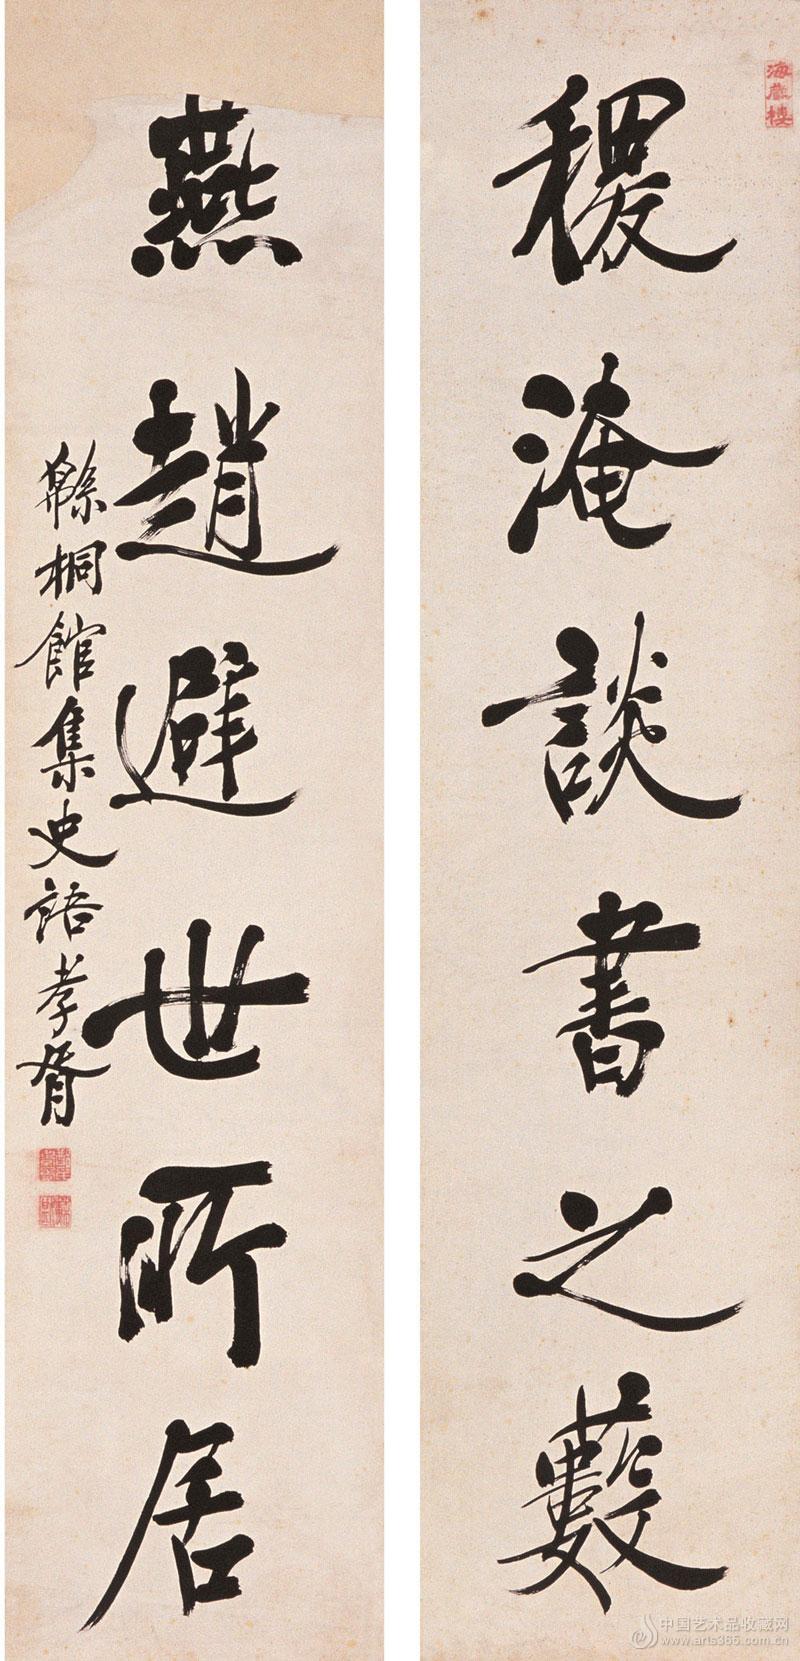 海藏樓
稷淹談書之藪
燕趙避世所居
緐桐館集史語孝胥
中国艺术品收藏网
www.arts365.com.cn